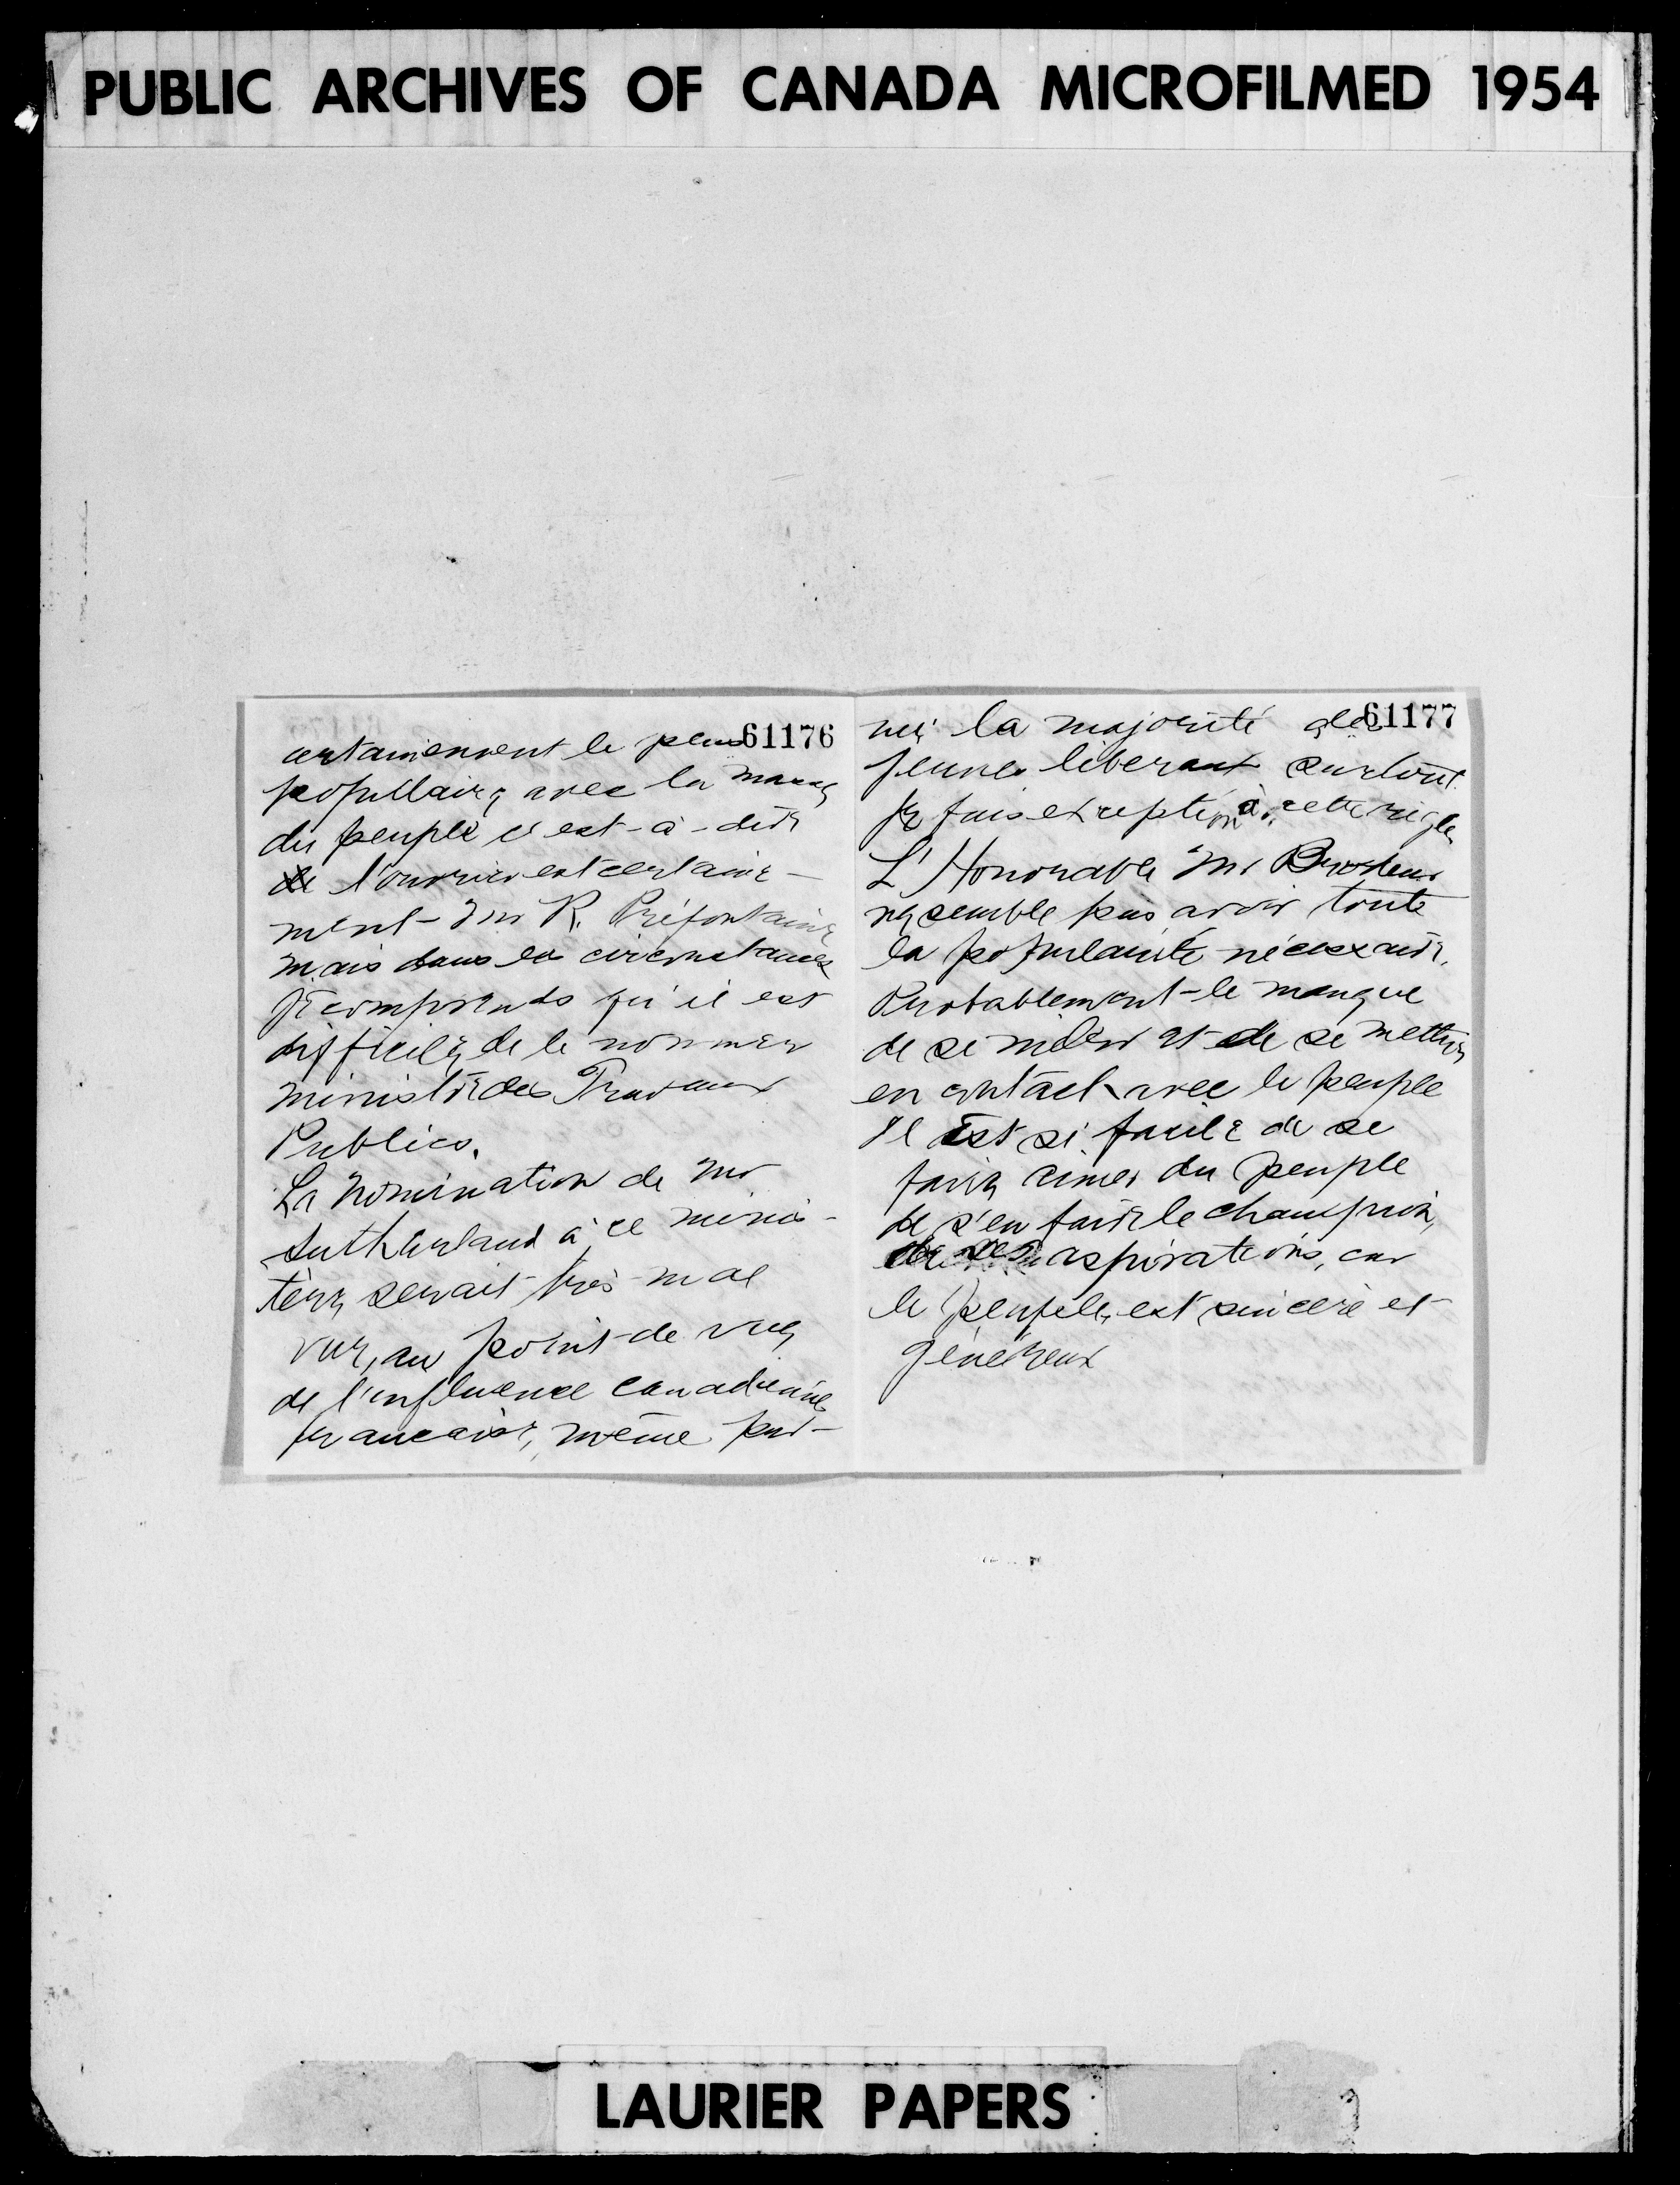 PUBLIC ARCHIVES OF CANADA MICROFILMED 1954
61176
certainement le plus
populaire, avec la masse
du peuple c'est-à-dire
de l'ouvrier est certaine-
ment Mr R. Préfontaine
mais dans les circonstances
je comprends qu'il est
difficile, de le nommer
ministre des Travaux
Publics.
La nomination de Mr
Sutherland à ce minis-
tère serait très mal
vue, au point de vue
de l'influence canadienne
française, même par-
61177
mi la majorité des
jeunes libéraux surtout.
Je fais exception à cette règle
L'Honorable Mr Brodeur
ne semble pas avoir toute
la popularité nécessaire.
Probablement le manque
de se mêler et de se mettre
en contact avec le peuple
Il est si facile de se
faire aimer du peuple
de s'en faire le champion,
de ses aspirations, car
le peuple, est sincère et
généreux
LAURIER PAPERS